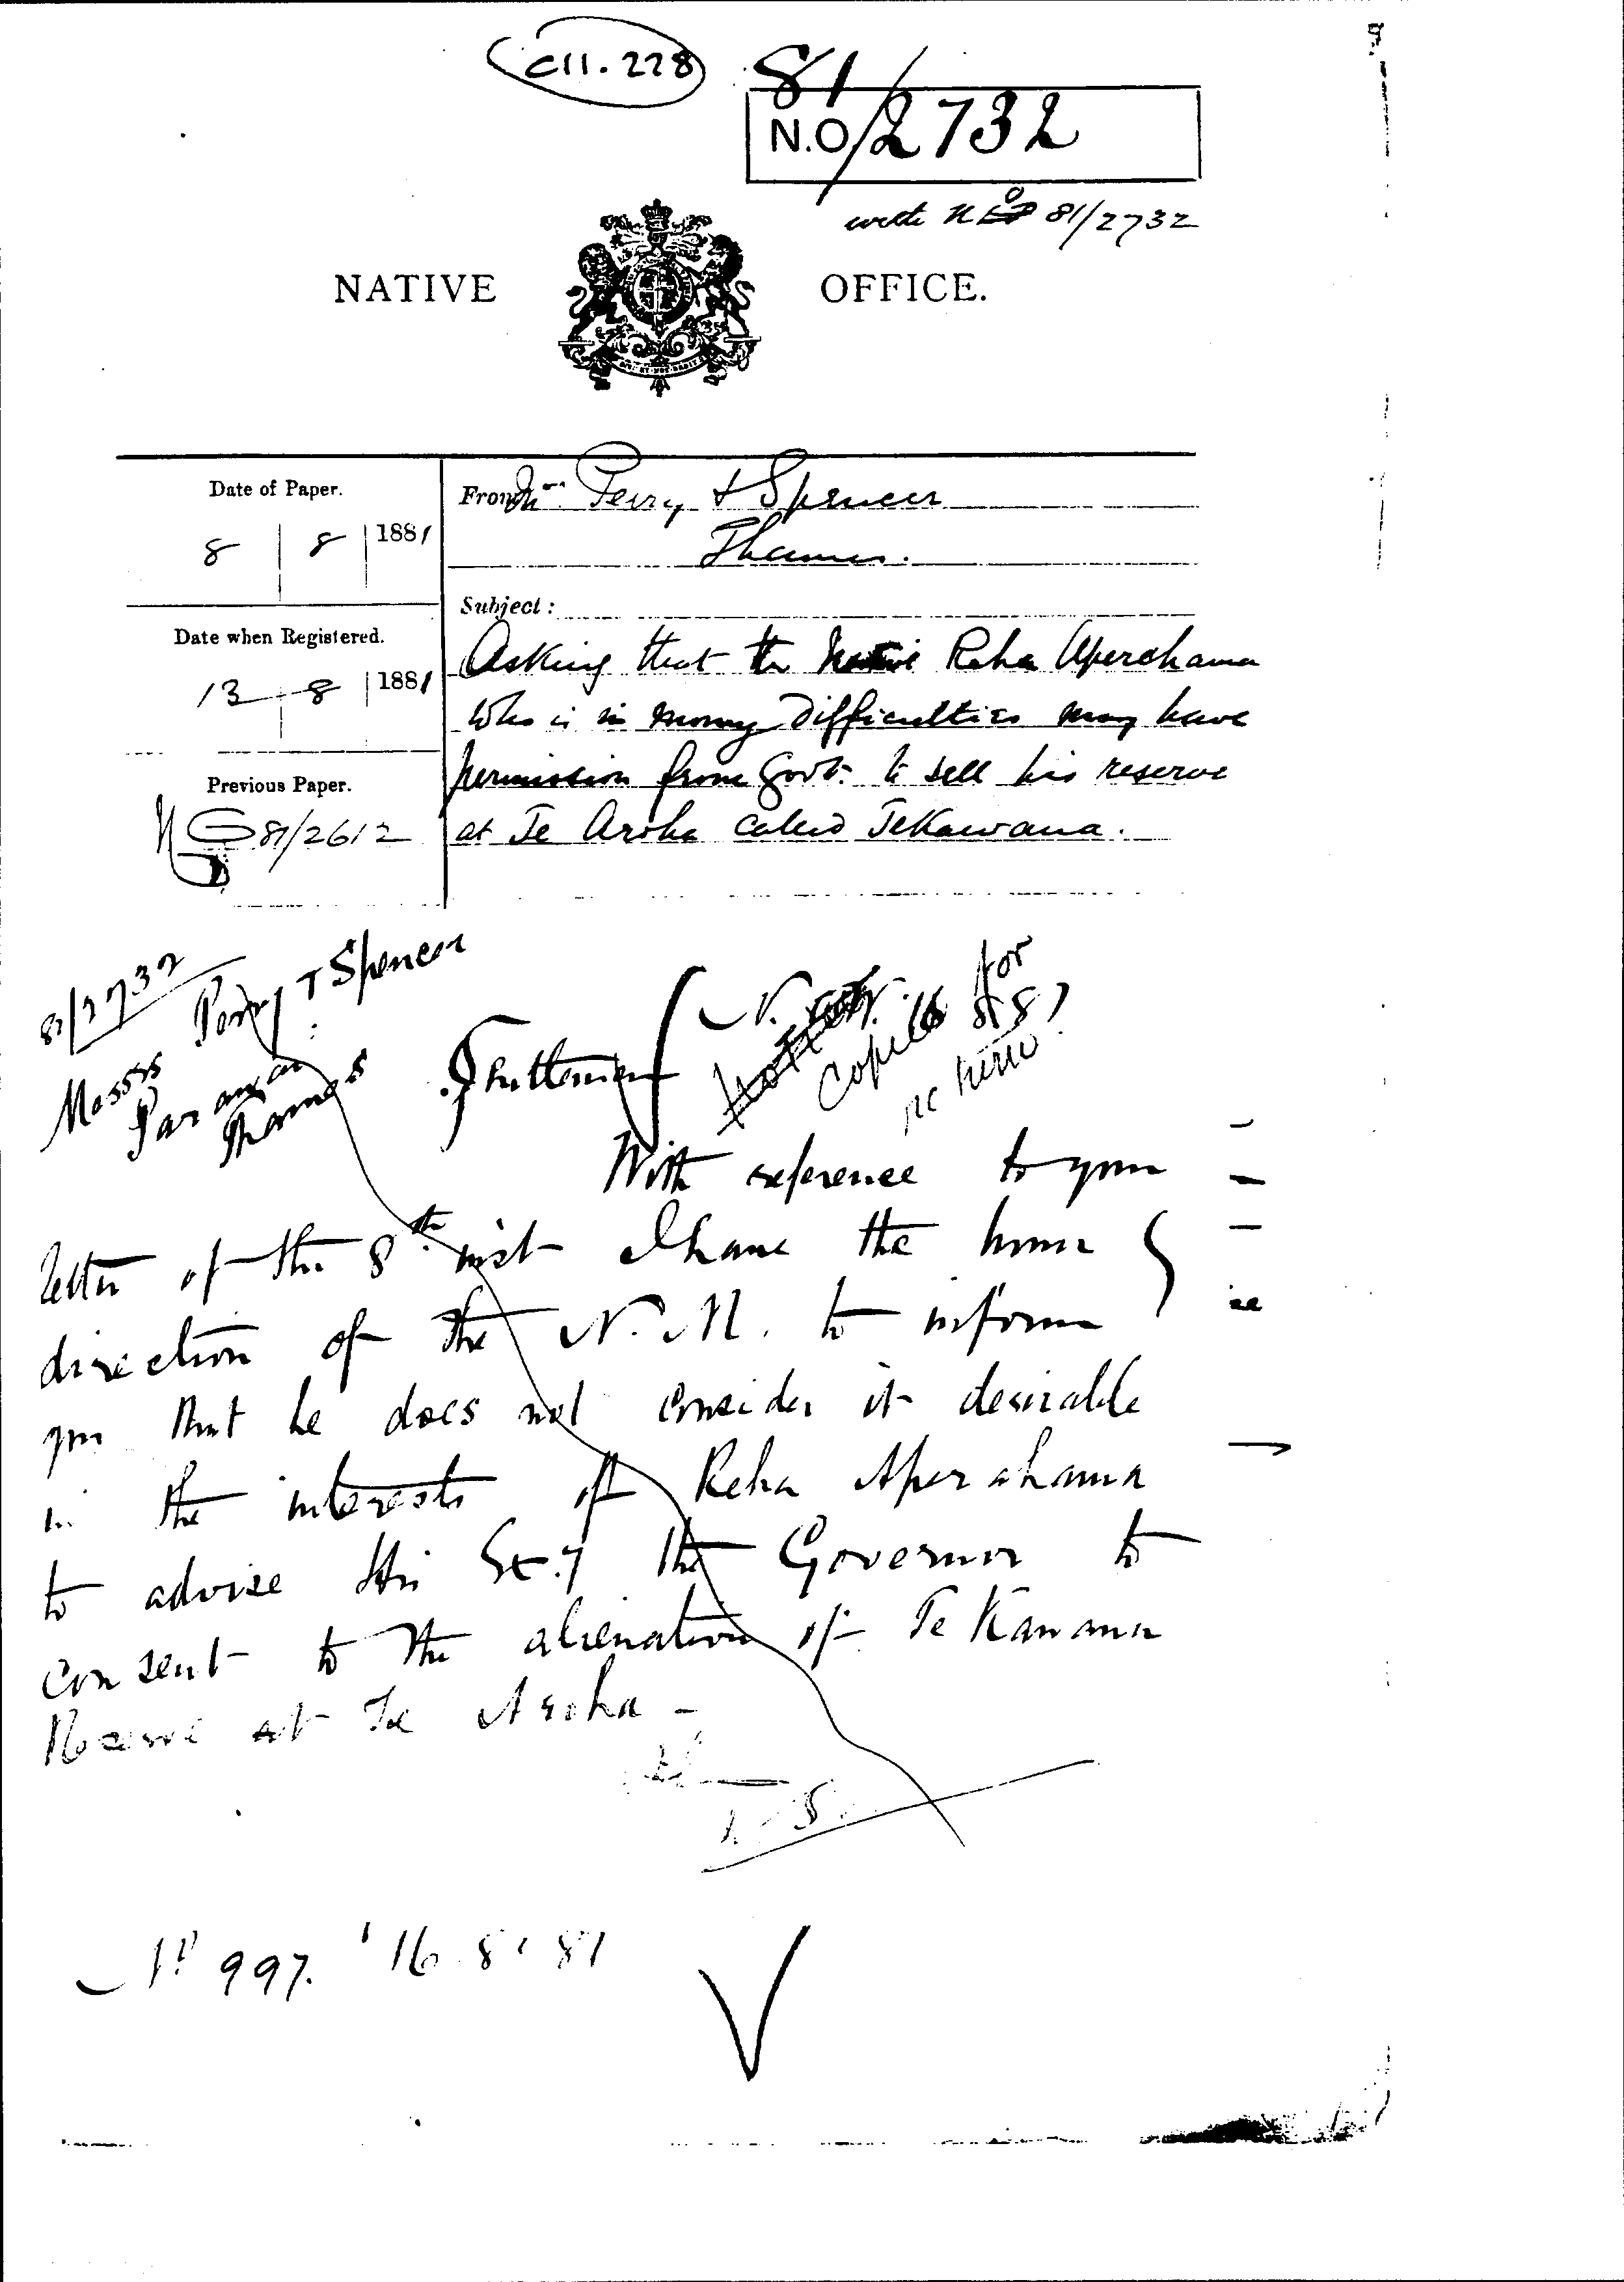 C11.228
81/
N.O/2732
with N L O 81/2732
NATIVE OFFICE.
Date of Paper.
8 8 1881
Date when Registered.
13 8 1881
Previous Paper.
81/2612
From Perry & Spencer
Thames.
Subject:
Asking that the Native Reha Aperahama
who is in money difficulties may have
permission from Govt. to sell his reserve
at Te Aroha called TeKawana.
81/2732
Messrs Perry & Spencer
Thames
Gentlemen
N.
for
Copied
With reference to your
letter of the 8th inst I have the honor
direction of the N. M. to inform
you that he does not consider it desirable
in the interests of Reha Aperahama
to advise His Ex.y the Governor to
consent to the alienation of Te Kawana
Reserve at Te Aroha -
No 997. 16 8 81